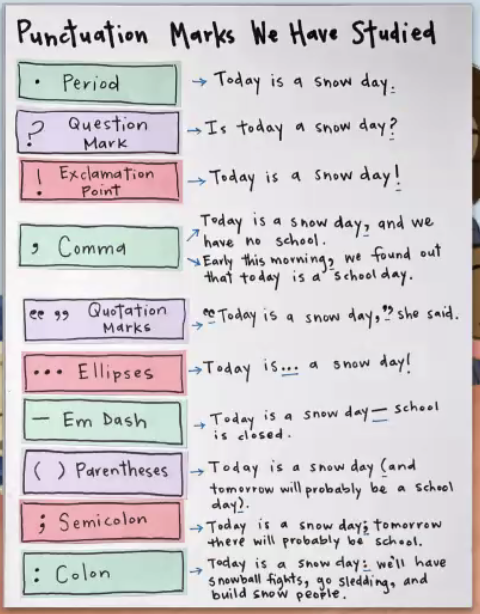 Punctuation Marks We Have Studied
. Period → Today is a snow day.
? Question Mark → Is today a snow day?
! Exclamation Point → Today is a snow day!
, Comma → Today is a snow day, and we
have no school.
→ Early this morning, we found out
that today is a school day.
“ ” Quotation Marks → “Today is a snow day,” she said.
... Ellipses → Today is... a snow day!
— Em Dash → Today is a snow day — school
is closed.
( ) Parentheses → Today is a snow day (and
tomorrow will probably be a school
day).
; Semicolon → Today is a snow day; tomorrow
there will probably be school.
: Colon → Today is a snow day: we'll have
snowball fights, go sledding, and
build snow people.